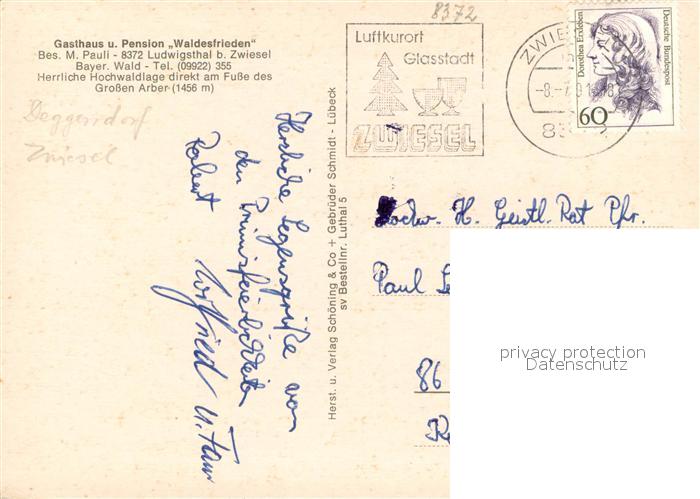 8372
Gasthaus u. Pension „Waldesfrieden"
Bes. M. Pauli - 8372 Ludwigsthal b. Zwiesel
Bayer. Wald - Tel. (09922) 355
Herrliche Hochwaldlage direkt am Fuße des
Großen Arber (1456 m)
Deggendorf
Zwiesel
Luftkurort
Glasstadt
ZWIESEL
ZWIES
-8.-7.
83
Dorothea Erxleben
Deutsche Bundespost
60
Herzliche Segensgrüße von
den Primizfeierlichkeiten
Robert Wilfried u.
Herst. u. Verlag Schöning & Co + Gebrüder Schmidt - Lübeck
sv Bestellnr. Luthal 5
Hochw. H. Geistl. Rat Pfr.
Paul
86
privacy protection
Datenschutz